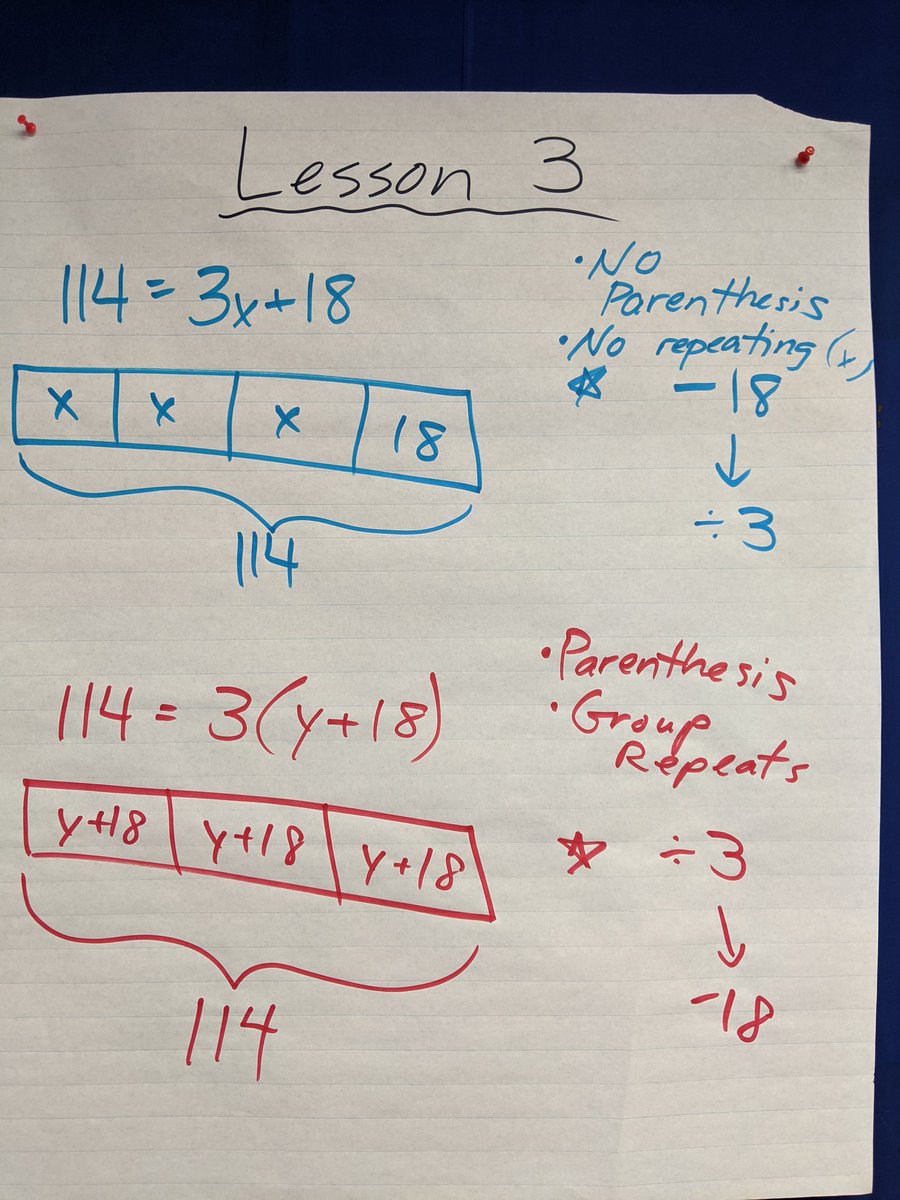 Lesson 3
114 = 3x+18
x x x 18
114
• No
Parenthesis
• No repeating (x)
☆ -18
↓
÷3
114 = 3(y+18)
y+18 y+18 y+18
114
• Parenthesis
• Group
Repeats
☆ ÷3
↓
-18